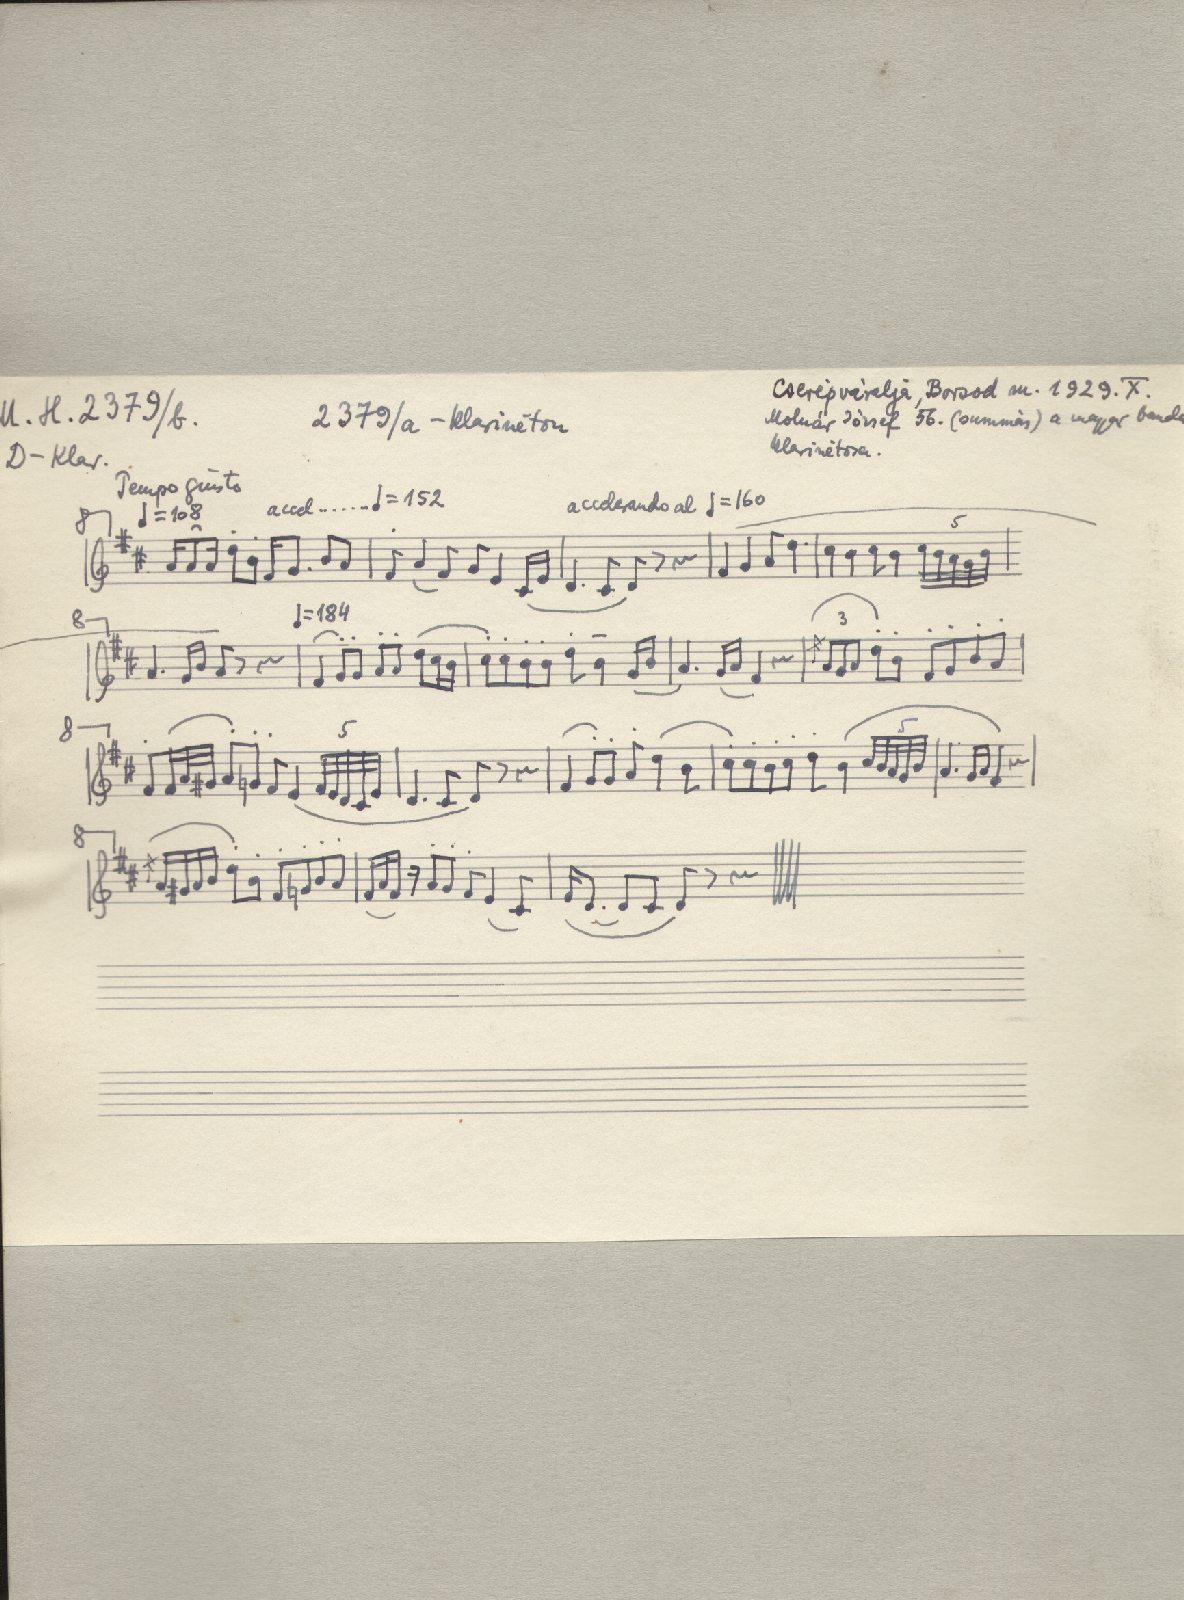 M. H. 2379/b. 2379/a - klarinéton
Cserépváralja, Borsod m. 1929. X.
Molnár József 56. (summás) a magyar banda
klarinétosa.
D - Klar.
Tempo giusto
♩ = 108 accel ...... ♩ = 152 accelerando al ♩ = 160
8
5
8
♩ = 184
3
8
5
5
8